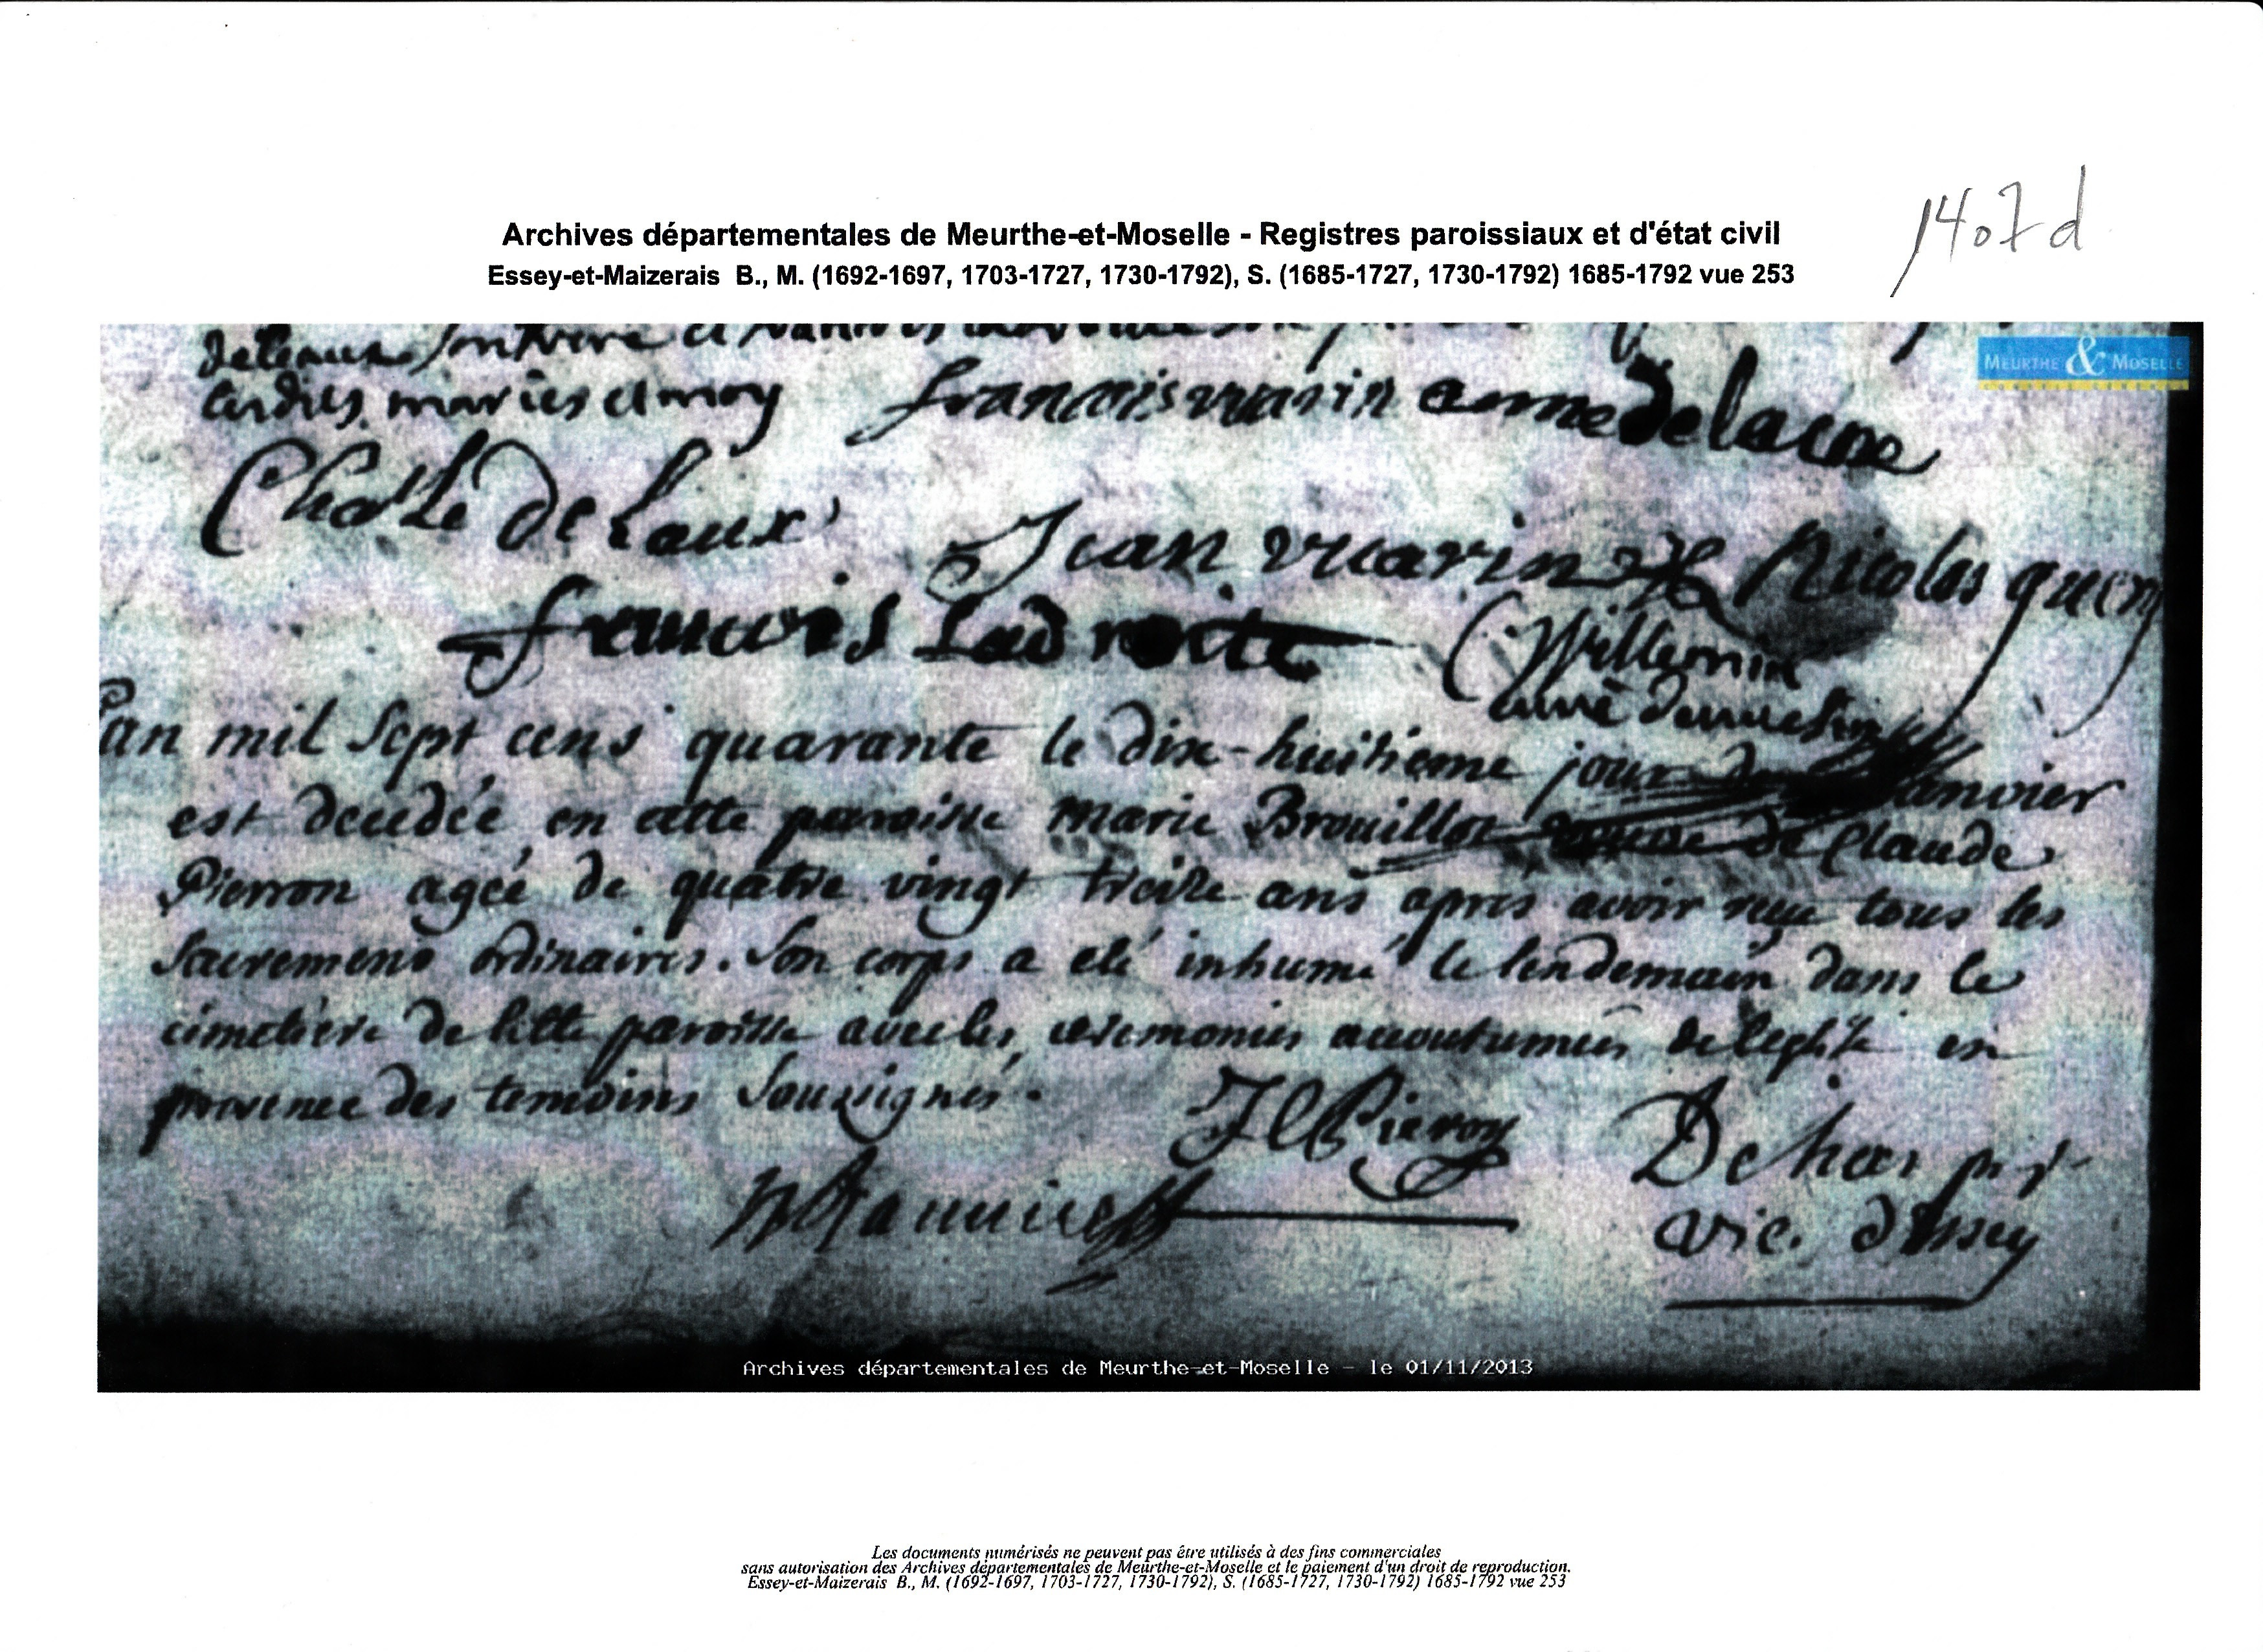 1407d
Archives départementales de Meurthe-et-Moselle - Registres paroissiaux et d'état civil
Essey-et-Maizerais B., M. (1692-1697, 1703-1727, 1730-1792), S. (1685-1727, 1730-1792) 1685-1792 vue 253
MEURTHE & MOSELLE
lesdits mariés et moy francois vuarin anne
Jean vuarin Nicolas
francois Ladroite
C Willemin
curé
Lan mil sept cens quarante le dix-huitieme jour de Janvier
est decedée en cette paroisse marie Brouillot veuve de Claude
Pierron agée de quatre vingt treize ans apres avoir reçu tous les
sacremens ordinaires. Son corps a eté inhumé le lendemain dans le
cimetiere de cette paroisse avec les ceremonies accoutumées de leglise en
presence des temoins soussignés.
JC Pieron
vic. dEssey
Archives départementales de Meurthe-et-Moselle - le 01/11/2013
Les documents numérisés ne peuvent pas être utilisés à des fins commerciales
sans autorisation des Archives départementales de Meurthe-et-Moselle et le paiement d'un droit de reproduction.
Essey-et-Maizerais B., M. (1692-1697, 1703-1727, 1730-1792), S. (1685-1727, 1730-1792) 1685-1792 vue 253